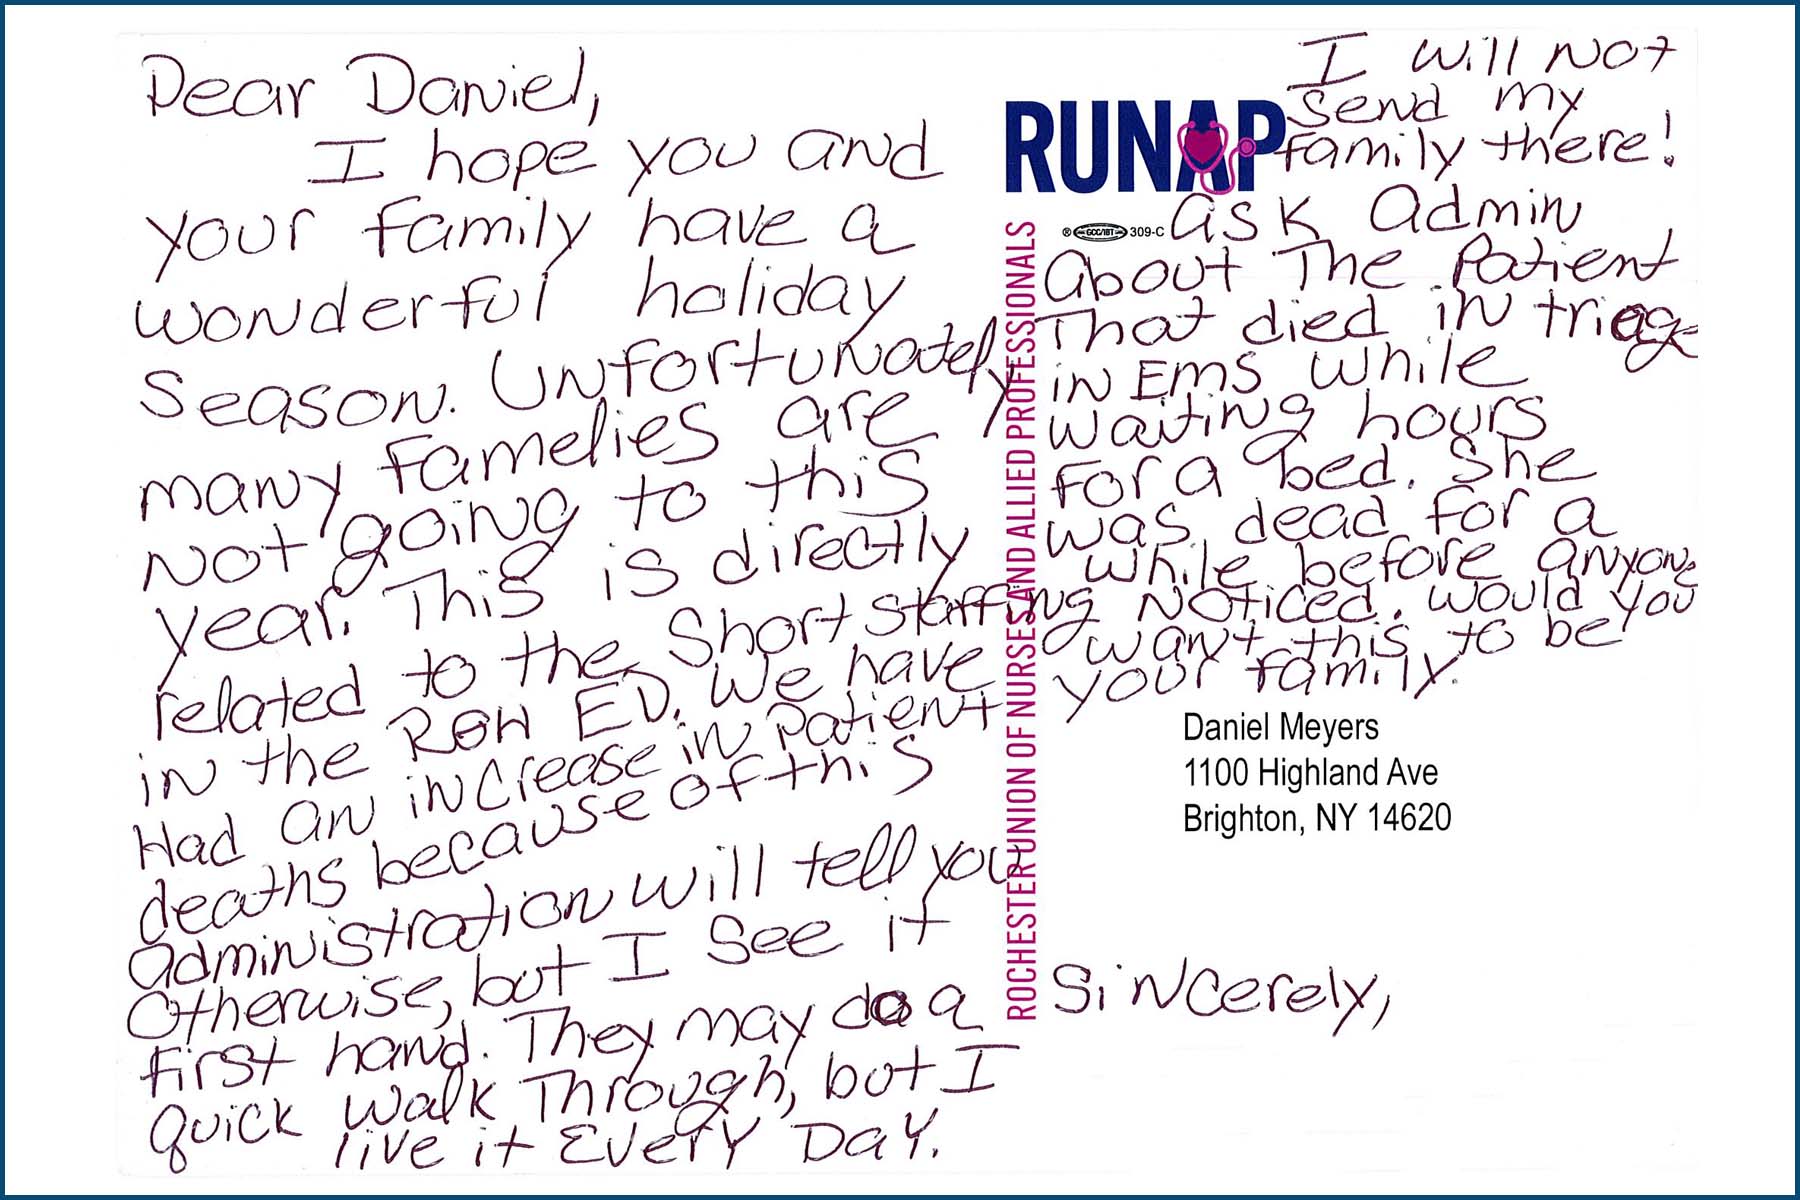 Dear Daniel,
I hope you and
your family have a
wonderful holiday
season. Unfortunately
many famelies are
not going to this
year. This is directly
related to the short staffing
in the RGH ED. We have
Had an increase in patient
deaths because of this
Administration will tell you
Otherwise, but I see it
first hand. They may do a
quick walk Through, but I
live it EVERY DAY.
I will not
send my
family there!
RUNAP
® GCC/IBT 309-C
ROCHESTER UNION OF NURSES AND ALLIED PROFESSIONALS
ask admin
about The Patient
That died in triage
in EMS while
waiting hours
for a bed. She
was dead for a
while before anyone
noticed. would you
want this to be
your family.
Daniel Meyers
1100 Highland Ave
Brighton, NY 14620
Sincerely,